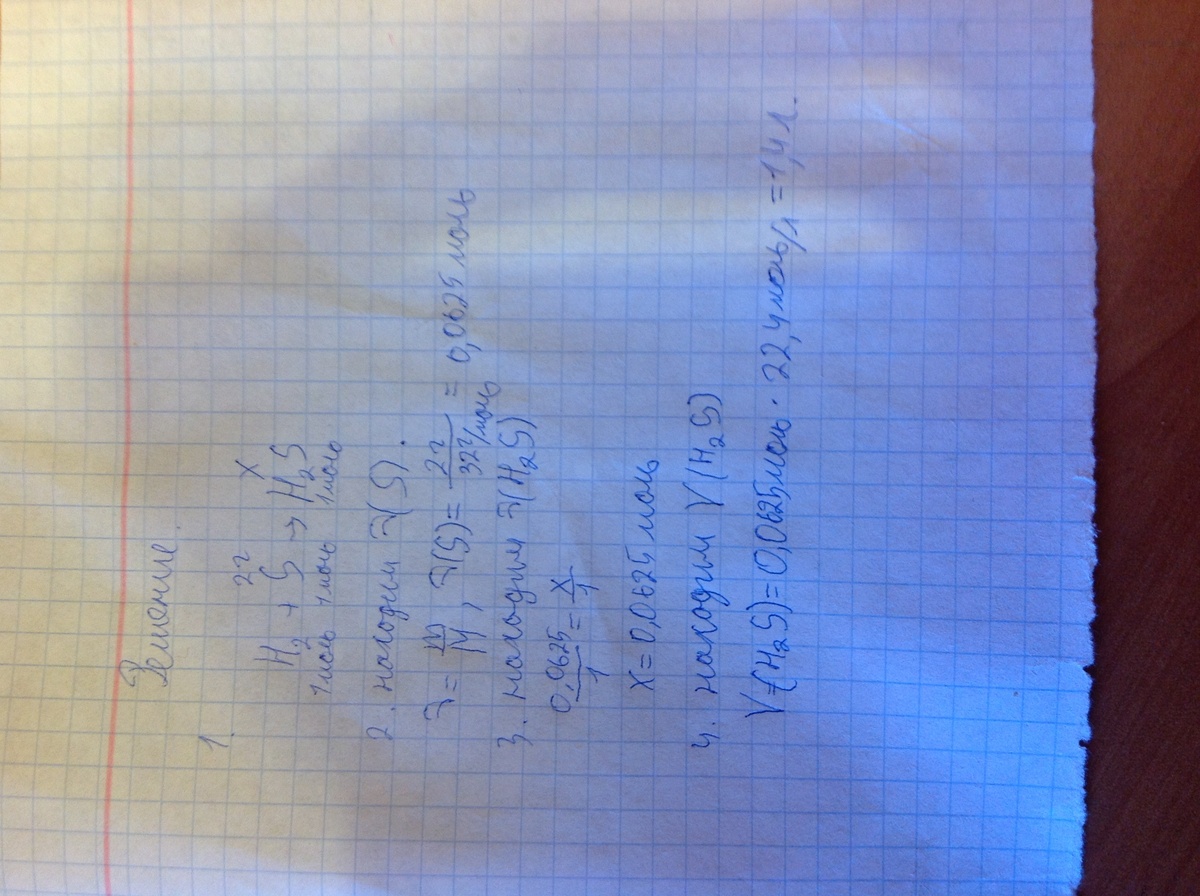 Решение
1.
2г x
H₂ + S → H₂S
1 моль 1 моль 1 моль
2. находим ν(S).
ν = m/M, ν(S) = 2г/32г/моль = 0,0625 моль
3. находим ν(H₂S)
0,0625/1 = x/1
x = 0,0625 моль
4. находим V(H₂S)
V=(H₂S) = 0,0625моль · 22,4моль/л = 1,4 л.